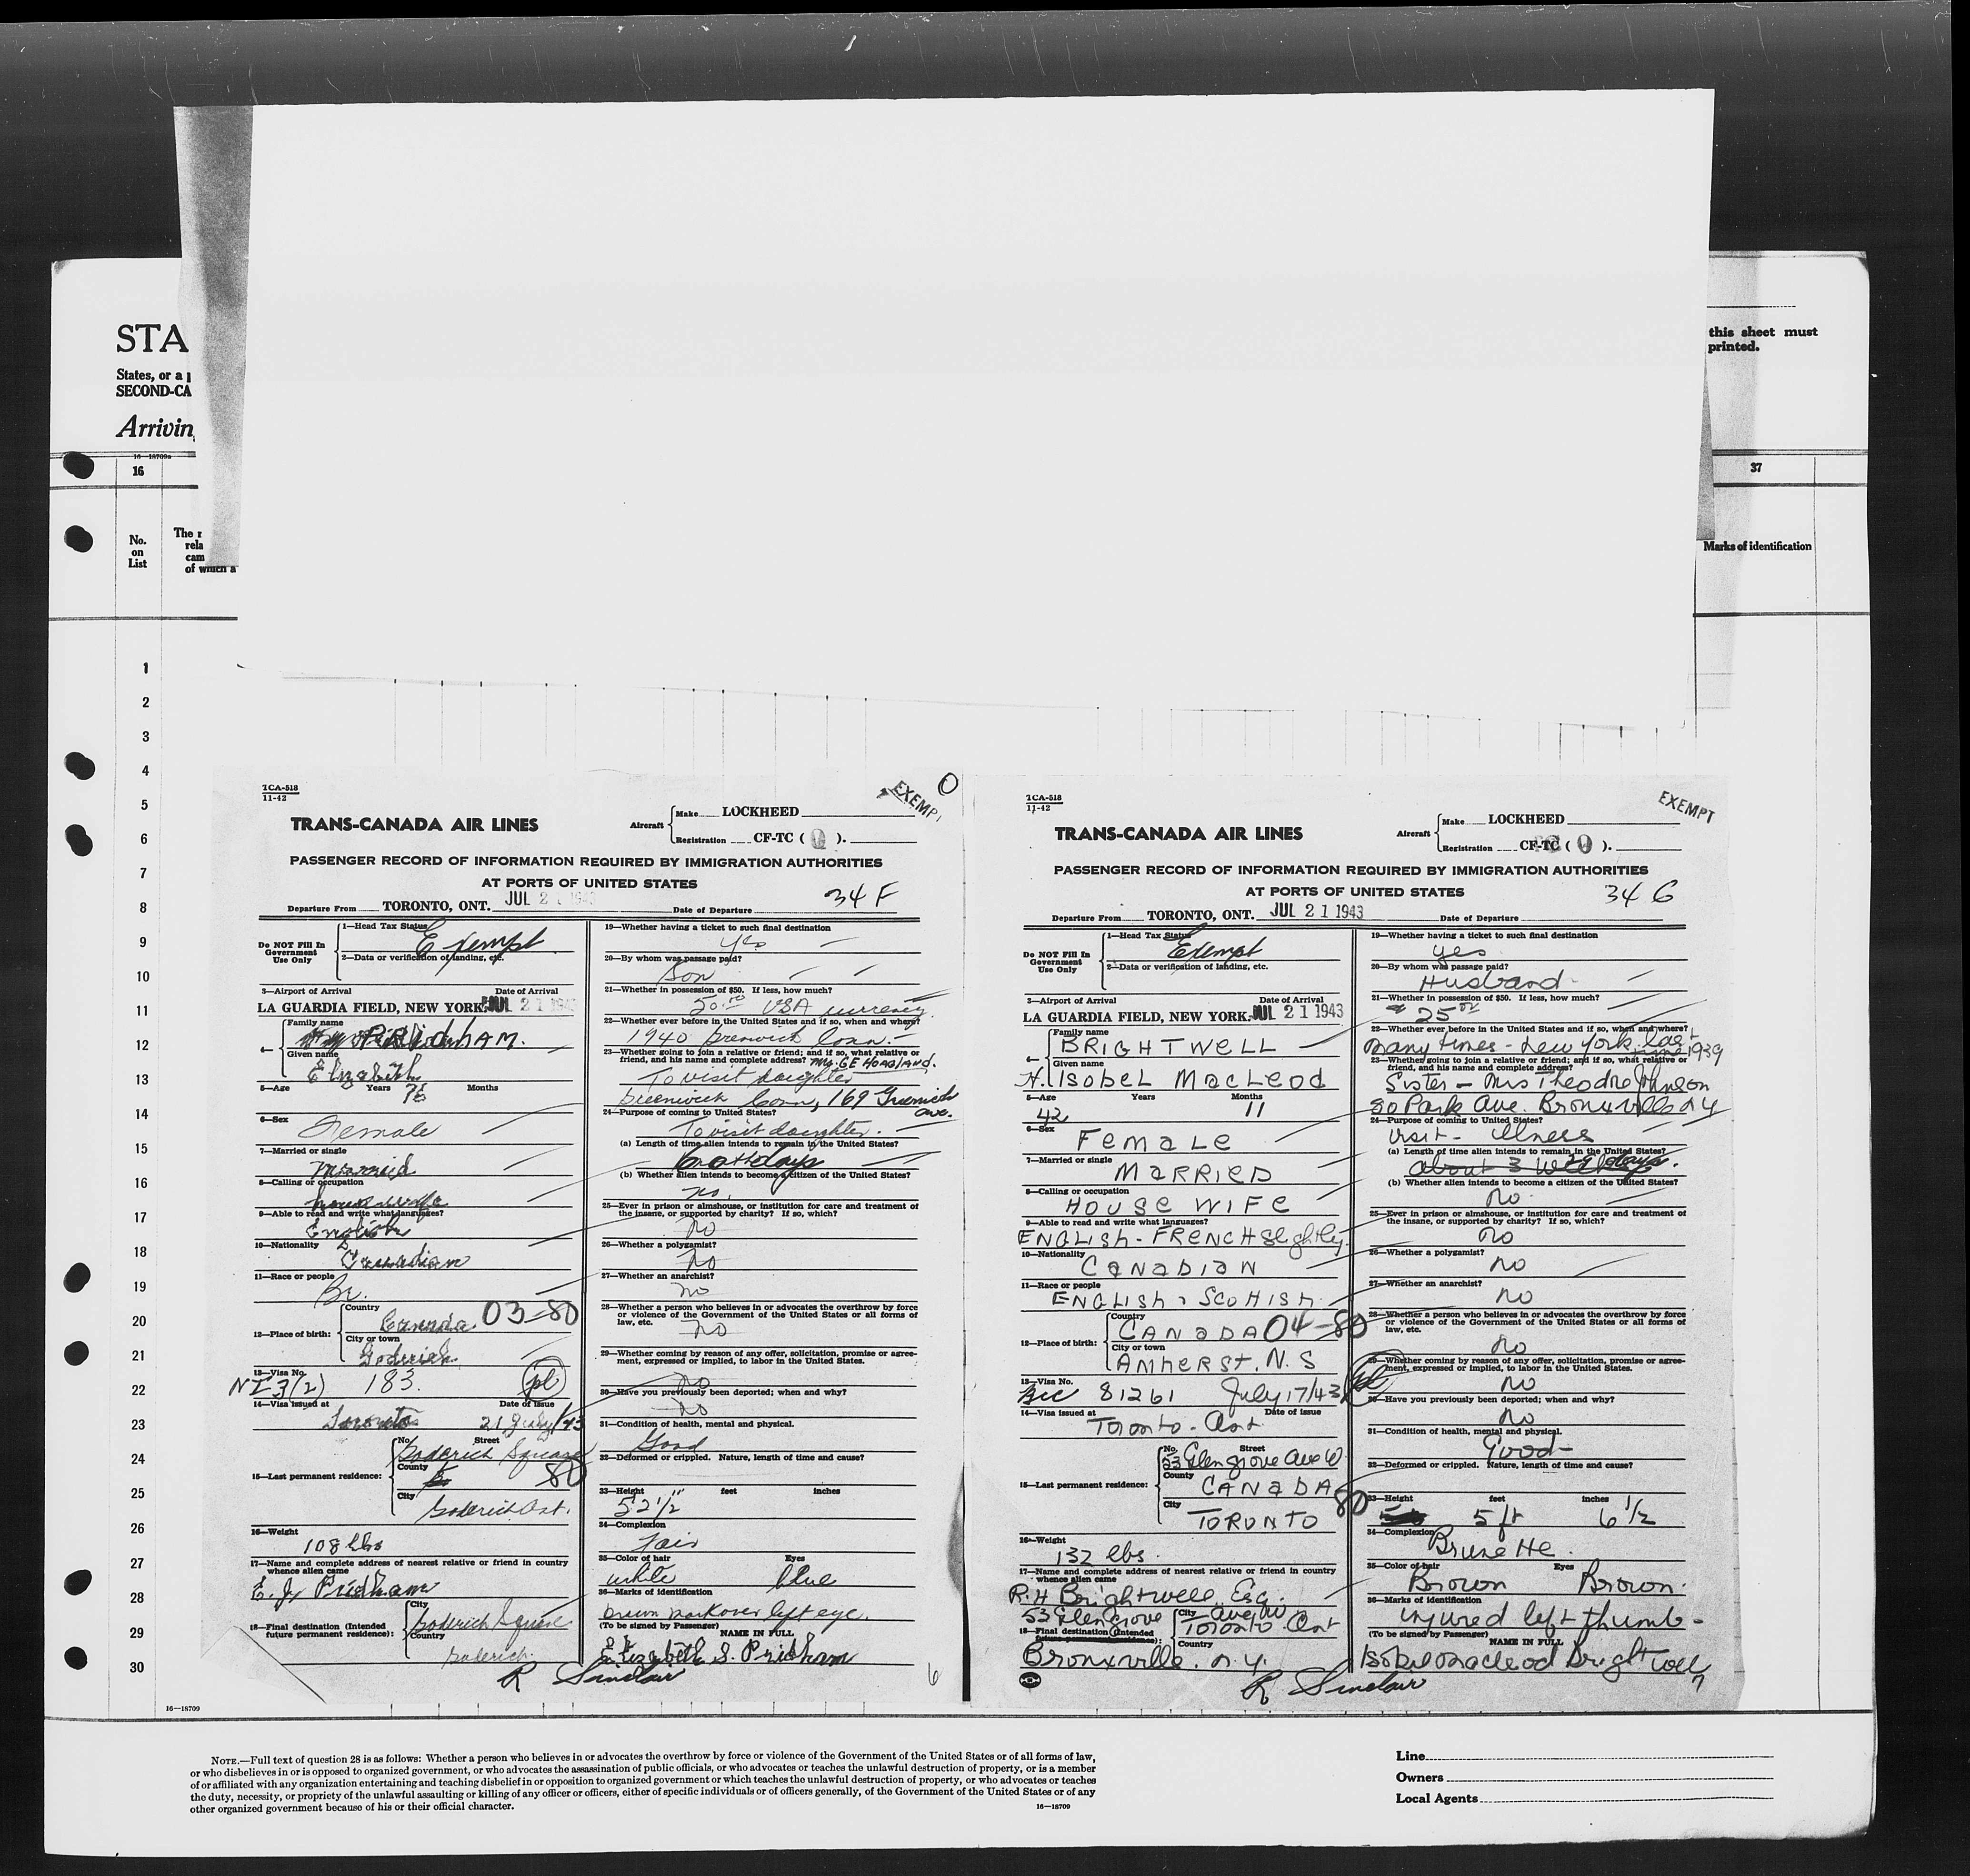 STA
States, or a p
SECOND-CA
Arrivin
this sheet must
printed.
16—18709a
16
37
No.
on
List
The r
rela
cam
of which a
Marks of identification
1
2
3
4
5
6
7
8
9
10
11
12
13
14
15
16
17
18
19
20
21
22
23
24
25
26
27
28
29
30
TCA-518
11-42
O
EXEMPT
TRANS-CANADA AIR LINES
Aircraft
Make LOCKHEED
Registration CF-TC ( Q ).
PASSENGER RECORD OF INFORMATION REQUIRED BY IMMIGRATION AUTHORITIES
AT PORTS OF UNITED STATES
34 F
Departure From TORONTO, ONT. JUL 21 1943 Date of Departure
Do NOT Fill In
Government
Use Only
1—Head Tax Status
Exempt
2—Data or verification of landing, etc.
3—Airport of Arrival Date of Arrival
LA GUARDIA FIELD, NEW YORK. JUL 21 1943
4—
Family name
PRIDHAM.
Given name
Elizabeth
5—Age Years Months
76
6—Sex
Female
7—Married or single
Married
8—Calling or occupation
housewife
9—Able to read and write what languages?
English
10—Nationality
Canadian
11—Race or people
Br.
12—Place of birth:
Country
Canada 03-80
City or town
Goderich
13—Visa No.
NI 3(2) 183. pl
14—Visa issued at Date of Issue
Toronto 21 July/43
15—Last permanent residence:
No. Street
Goderich Square
County
80
City
Goderich Ont.
16—Weight
108 lbs
17—Name and complete address of nearest relative or friend in country
whence alien came
E. J. Pridham
18—Final destination (Intended
future permanent residence):
City
Goderich Square
Country
Goderich
19—Whether having a ticket to such final destination
yes
20—By whom was passage paid?
Son
21—Whether in possession of $50. If less, how much?
50.00 USA currency
22—Whether ever before in the United States and if so, when and where?
1940 Greenwich Conn.
23—Whether going to join a relative or friend; and if so, what relative or
friend, and his name and complete address? Mrs. GE HOAGLAND.
To visit daughter
Greenwich Conn, 169 Greenwich
ave.
24—Purpose of coming to United States?
To visit daughter.
(a) Length of time alien intends to remain in the United States?
(b) Whether alien intends to become a citizen of the United States?
no.
25—Ever in prison or almshouse, or institution for care and treatment of
the insane, or supported by charity? If so, which?
no
26—Whether a polygamist?
no
27—Whether an anarchist?
no
28—Whether a person who believes in or advocates the overthrow by force
or violence of the Government of the United States or all forms of
law, etc.
no
29—Whether coming by reason of any offer, solicitation, promise or agree-
ment, expressed or implied, to labor in the United States.
no
30—Have you previously been deported; when and why?
no
31—Condition of health, mental and physical.
Good
32—Deformed or crippled. Nature, length of time and cause?
33—Height feet inches
5'2 1/2"
34—Complexion
Fair
35—Color of hair Eyes
white blue
36—Marks of identification
brown mark over left eye.
(To be signed by Passenger) NAME IN FULL
Elizabeth S. Pridham
R Sinclair
6
TCA-518
11-42
EXEMPT
TRANS-CANADA AIR LINES
Aircraft
Make LOCKHEED
Registration CF-TC ( Q ).
PASSENGER RECORD OF INFORMATION REQUIRED BY IMMIGRATION AUTHORITIES
AT PORTS OF UNITED STATES
34 G
Departure From TORONTO, ONT. JUL 21 1943 Date of Departure
Do NOT Fill In
Government
Use Only
1—Head Tax Status
Exempt
2—Data or verification of landing, etc.
3—Airport of Arrival Date of Arrival
LA GUARDIA FIELD, NEW YORK. JUL 21 1943
4—
Family name
BRIGHTWELL
Given name
H. ISOBEL MACLEOD
5—Age Years Months
42 11
6—Sex
FEMALE
7—Married or single
MARRIED
8—Calling or occupation
HOUSE WIFE
9—Able to read and write what languages?
ENGLISH - FRENCH slightly
10—Nationality
CANADIAN
11—Race or people
ENGLISH & SCOTTISH
12—Place of birth:
Country
CANADA 04-80
City or town
AMHERST, N.S
13—Visa No.
81261 July 17/43
14—Visa issued at Date of Issue
Toronto - Ont
15—Last permanent residence:
No. Street
53 Glengrove Ave W
County
CANADA
80
City
TORONTO
16—Weight
132 lbs.
17—Name and complete address of nearest relative or friend in country
whence alien came
R. H Brightwell Esq.
53 Glengrove Ave W
18—Final destination (Intended
future permanent residence):
City
Toronto Ont
Country
Bronxville. N.Y.
19—Whether having a ticket to such final destination
yes
20—By whom was passage paid?
Husband
21—Whether in possession of $50. If less, how much?
25 00
22—Whether ever before in the United States and if so, when and where?
Many times - New York. last
June 1939
23—Whether going to join a relative or friend; and if so, what relative or
friend, and his name and complete address?
Sister - Mrs Theodre Johnson
80 Park Ave. Bronxville N Y
24—Purpose of coming to United States?
Visit - Illness
(a) Length of time alien intends to remain in the United States?
about 3 Weeks
(b) Whether alien intends to become a citizen of the United States?
no
25—Ever in prison or almshouse, or institution for care and treatment of
the insane, or supported by charity? If so, which?
no
26—Whether a polygamist?
no
27—Whether an anarchist?
no
28—Whether a person who believes in or advocates the overthrow by force
or violence of the Government of the United States or all forms of
law, etc.
no
29—Whether coming by reason of any offer, solicitation, promise or agree-
ment, expressed or implied, to labor in the United States.
no
30—Have you previously been deported; when and why?
no
31—Condition of health, mental and physical.
Good
32—Deformed or crippled. Nature, length of time and cause?
33—Height feet inches
5 ft 6 1/2
34—Complexion
Brunette.
35—Color of hair Eyes
Brown Brown.
36—Marks of identification
injured left thumb -
(To be signed by Passenger) NAME IN FULL
Isobel Macleod Brightwell
R Sinclair
7
16—18709
NOTE.—Full text of question 28 is as follows: Whether a person who believes in or advocates the overthrow by force or violence of the Government of the United States or of all forms of law,
or who disbelieves in or is opposed to organized government, or who advocates the assassination of public officials, or who advocates or teaches the unlawful destruction of property, or is a member
of or affiliated with any organization entertaining and teaching disbelief in or opposition to organized government or which teaches the unlawful destruction of property, or who advocates or teaches
the duty, necessity, or propriety of the unlawful assaulting or killing of any officer or officers, either of specific individuals or of officers generally, of the Government of the United States or of any
other organized government because of his or their official character.
16—18709
Line
Owners
Local Agents